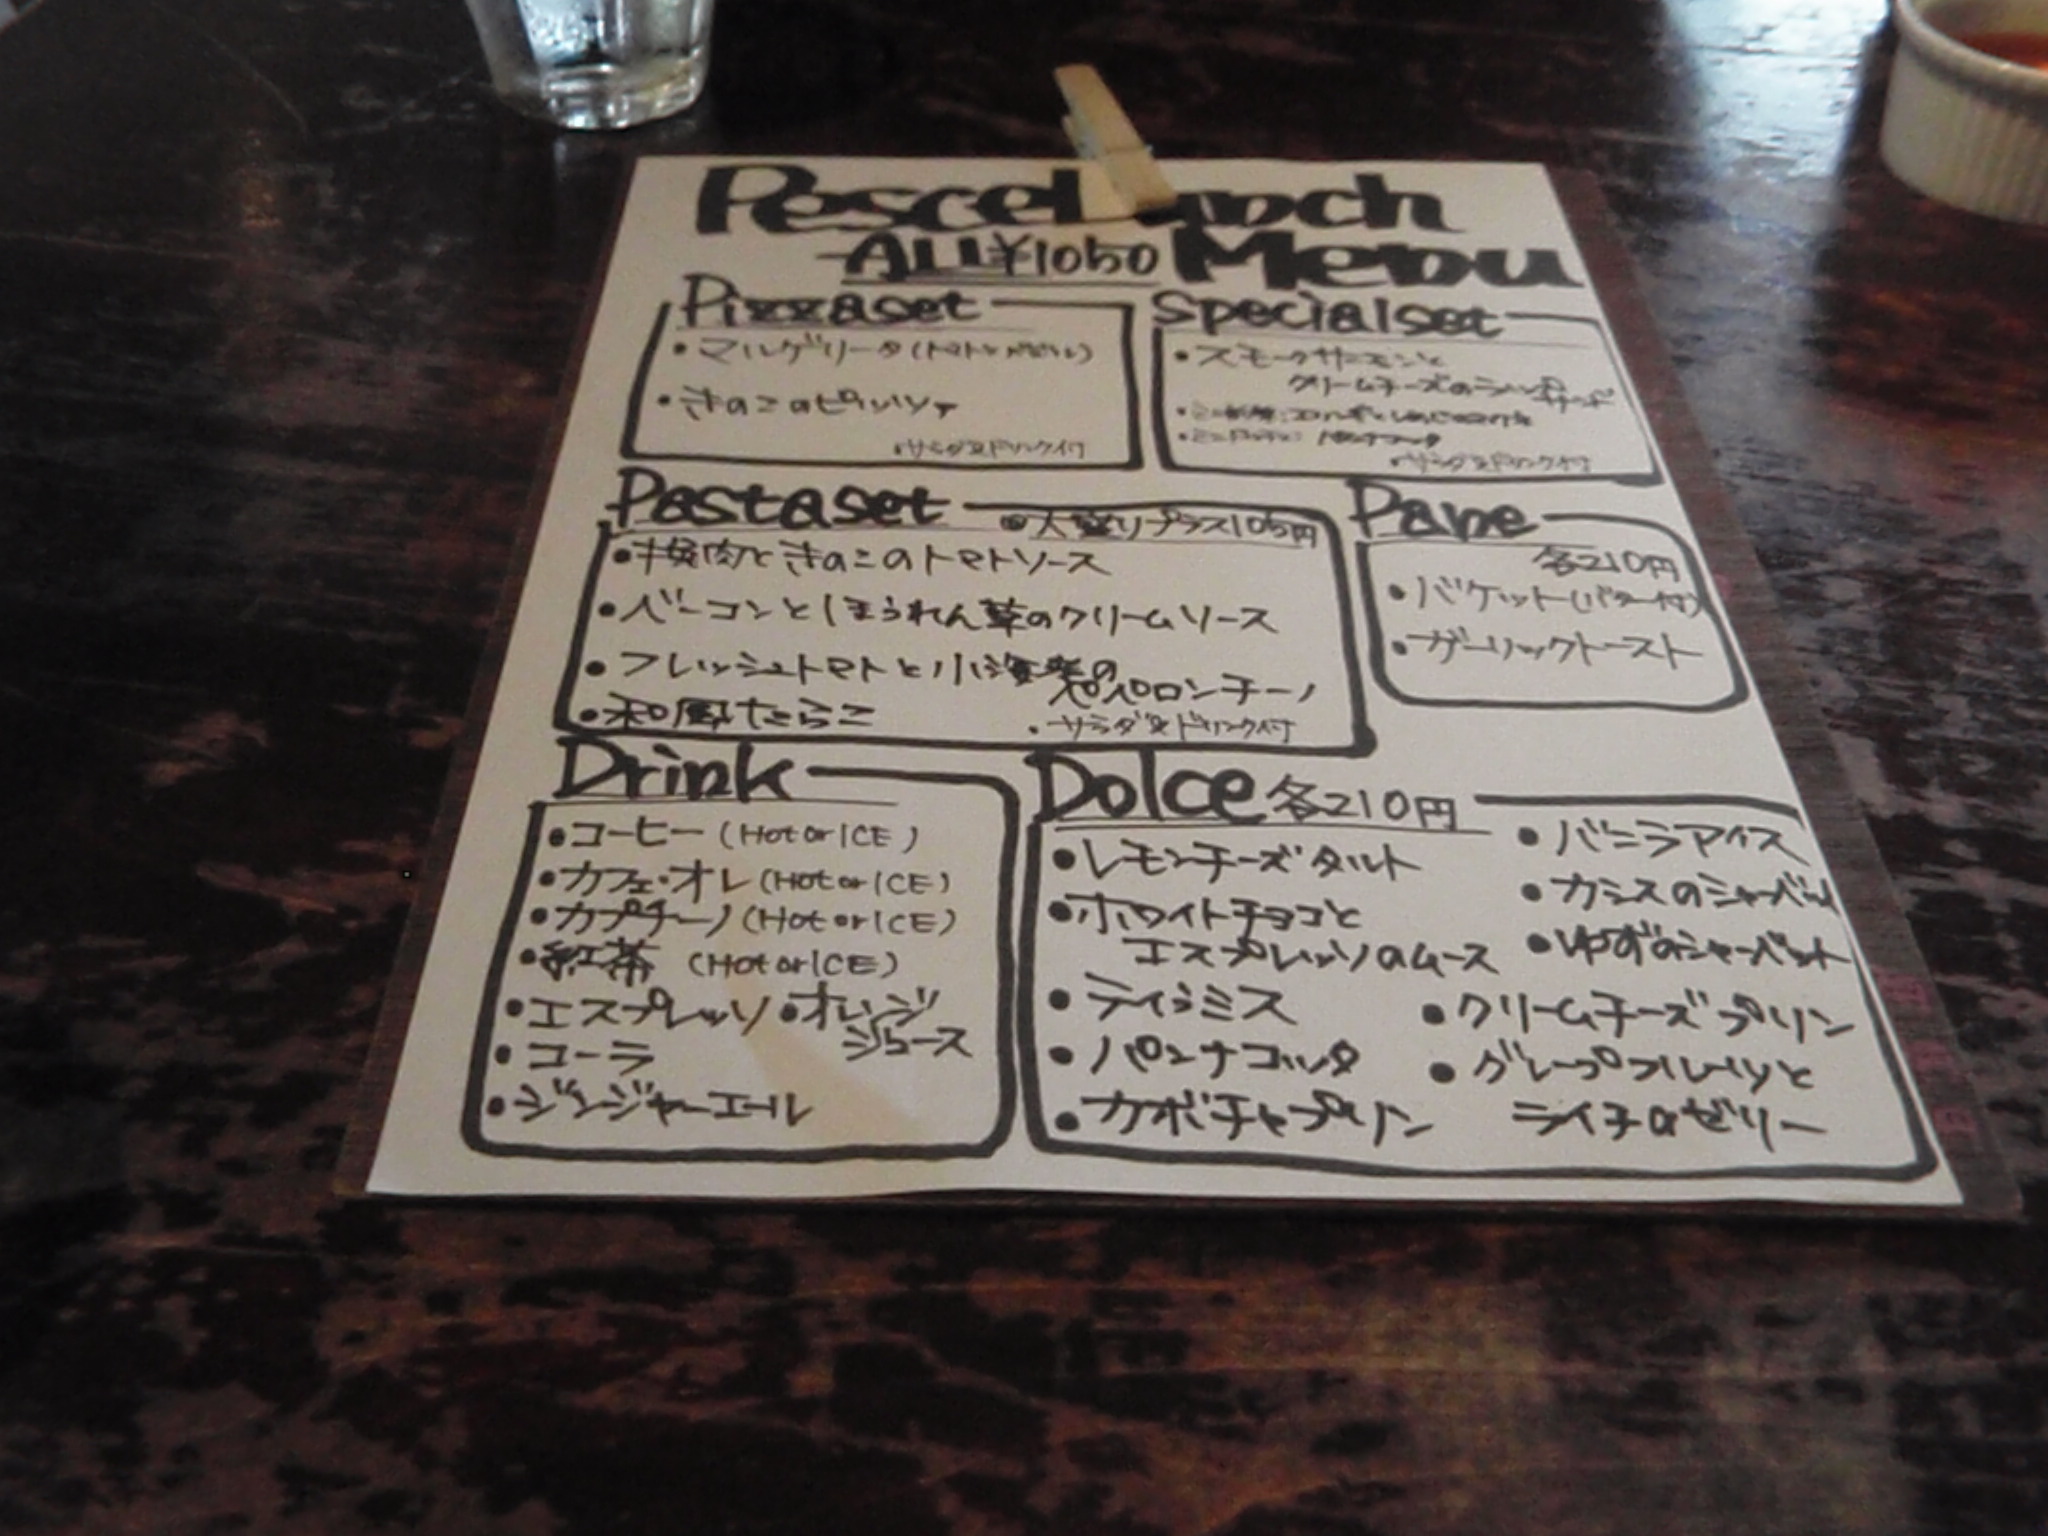 Pesce Lunch
ALL ¥1050 Menu
Pizza set
・マルゲリータ(トマト、バジル)
・きのこのピッツァ
・サラダ&ドリンク付
Special set
・スモークサーモンと
クリームチーズの
・サラダ&ドリンク付
Pasta set
・大盛りプラス105円
・挽肉ときのこのトマトソース
・ベーコンとほうれん草のクリームソース
・フレッシュトマトと小海老の
ペペロンチーノ
・和風たらこ
・サラダ&ドリンク付
Pane
各210円
・バケット(バター付)
・ガーリックトースト
Drink
・コーヒー (Hot or ICE)
・カフェ・オレ (Hot or ICE)
・カプチーノ (Hot or ICE)
・紅茶 (Hot or ICE)
・エスプレッソ ・オレンジ
ジュース
・コーラ
・ジンジャーエール
Dolce 各210円
・レモンチーズタルト
・ホワイトチョコと
エスプレッソのムース
・ティラミス
・パンナコッタ
・カボチャプリン
・バニラアイス
・カシスのシャーベット
・ゆずのシャーベット
・クリームチーズプリン
・グレープフルーツと
ライチのゼリー